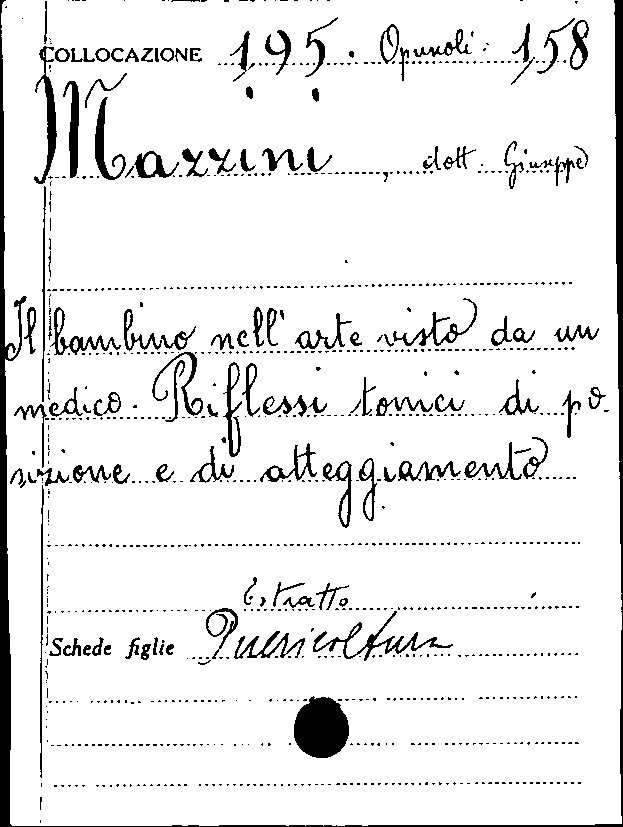 COLLOCAZIONE 195. Opuscoli. 158
Mazzini, dott. Giuseppe
Il bambino nell'arte visto da un
medico. Riflessi tonici di po-
sizione e di atteggiamento
Estratto
Schede figlie Puericoltura